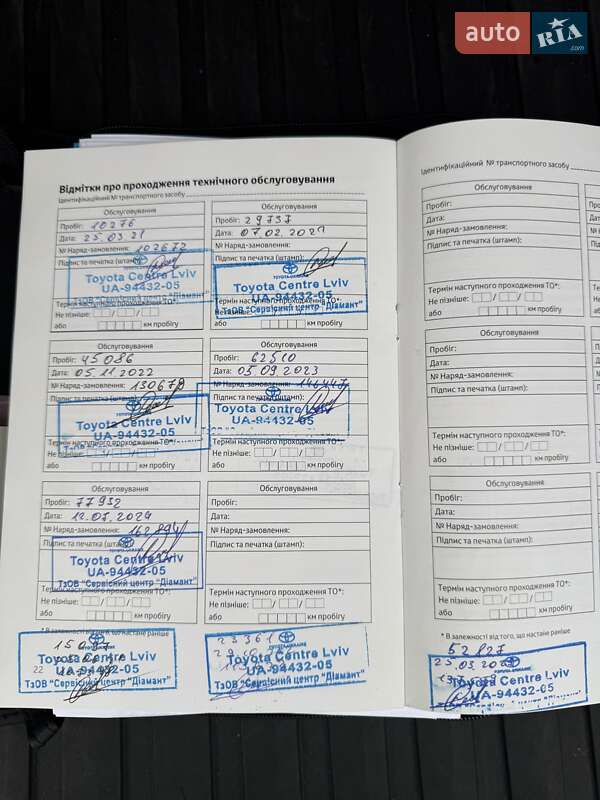 auto RIA .com
Відмітки про проходження технічного обслуговування
Ідентифікаційний № транспортного засобу
Обслуговування
Пробіг: 10276
Дата: 25.03.21
№ Наряд-замовлення: 102672
Підпис та печатка (штамп):
Toyota Centre Lviv
UA-94432-05
ТзОВ "Сервісний центр "Діамант"
Термін наступного проходження ТО*:
Не пізніше:
або км пробігу
Обслуговування
Пробіг: 29737
Дата: 07.02.202
№ Наряд-замовлення:
Підпис та печатка (штамп):
Toyota Centre Lviv
UA-94432-05
ТзОВ "Сервісний центр "Діамант"
Термін наступного проходження ТО*:
Не пізніше:
або км пробігу
Обслуговування
Пробіг: 45086
Дата: 05.11.2022
№ Наряд-замовлення: 130678
Підпис та печатка
Toyota Centre Lviv
UA-94432-05
Термін наступного проходження ТО*:
Не пізніше:
або км пробігу
Обслуговування
Пробіг: 62510
Дата: 05.09.2023
№ Наряд-замовлення: 146447
Підпис та печатка (штамп):
Toyota Centre Lviv
UA-94432-05
Термін наступного проходження ТО*:
Не пізніше:
або км пробігу
Обслуговування
Пробіг: 77932
Дата: 12.07.2024
№ Наряд-замовлення:
Підпис та печатка (штамп):
Toyota Centre Lviv
UA-94432-05
ТзОВ "Сервісний центр "Діамант"
Термін наступного проходження ТО*:
Не пізніше:
або км пробігу
Обслуговування
Пробіг:
Дата:
№ Наряд-замовлення:
Підпис та печатка (штамп):
Термін наступного проходження ТО*:
Не пізніше:
або км пробігу
* В залежності від того, що настане раніше
22
Toyota Centre Lviv
UA-94432-05
ТзОВ "Сервісний центр "Діамант"
23361
Toyota Centre Lviv
UA-94432-05
ТзОВ "Сервісний центр "Діамант"
Ідентифікаційний № транспортного засобу
Обслуговування
Пробіг:
Дата:
№ Наряд-замовлення:
Підпис та печатка (штамп):
Термін наступного проходження ТО*:
Не пізніше:
або км пробігу
Обслуговування
Пробіг:
Дата:
№ Наряд-замовлення:
Підпис та печатка (штамп):
Термін наступного проходження ТО*:
Не пізніше:
або км пробігу
Обслуговування
Пробіг:
Дата:
№ Наряд-замовлення:
Підпис та печатка (штамп):
Термін наступного проходження ТО*:
Не пізніше:
або км пробігу
* В залежності від того, що настане раніше
52827
Toyota Centre Lviv
UA-94432-05